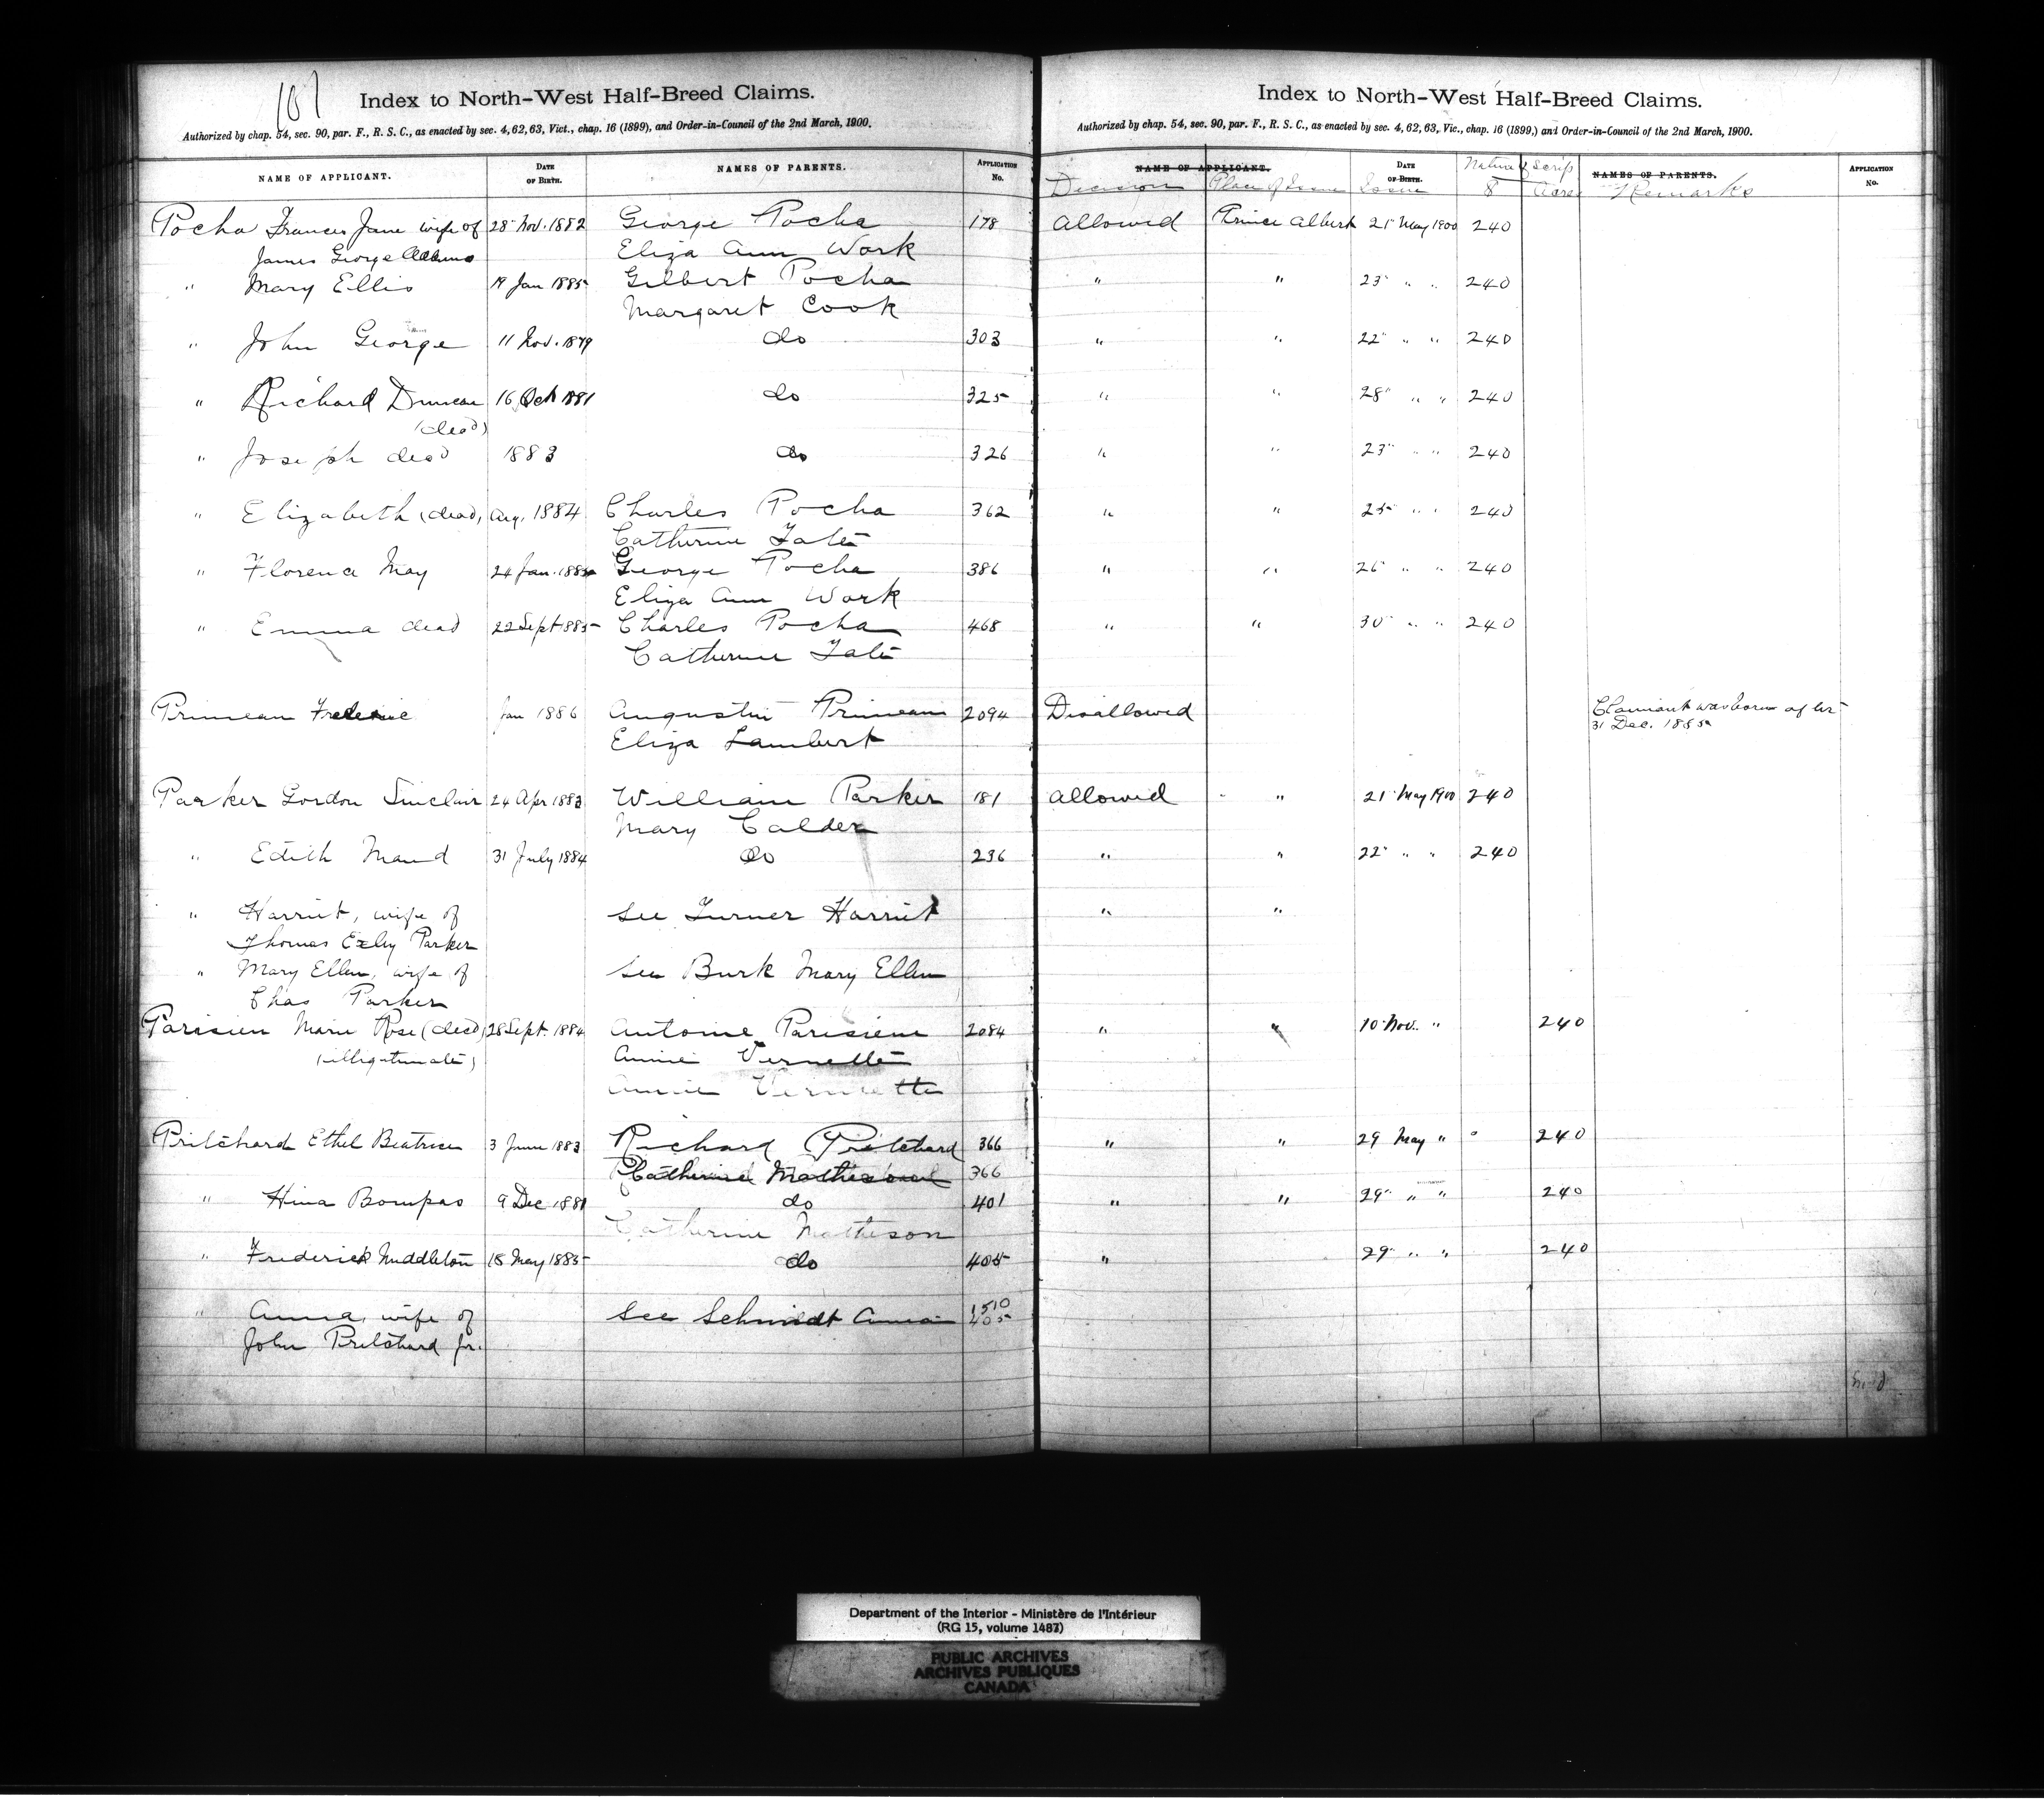 107
Index to North-West Half-Breed Claims.
Authorized by chap. 54, sec. 90, par. F., R. S. C., as enacted by sec. 4, 62, 63, Vict., chap. 16 (1899), and Order-in-Council of the 2nd March, 1900.
NAME OF APPLICANT. DATE OF BIRTH. NAMES OF PARENTS. APPLICATION No.
Pocha Frances Jane wife of 28 Nov. 1882 George Pocha 178
James George Eliza Ann Work
" Mary Ellis 19 Jan 1885 Gilbert Pocha
Margaret Cook
" John George 11 Nov. 1879 do 303
" Richard Duncan 16 Oct 1881 do 325
(dead)
" Joseph dead 1883 do 326
" Elizabeth (dead) Aug. 1884 Charles Pocha 362
Catherine Tate
" Florence May 24 Jan. 1885 George Pocha 386
Eliza Ann Work
" Emma dead 22 Sept 1885 Charles Pocha 468
Catherine Tate
Primeau Jan 1886 Augustin Primeau 2094
Eliza Lambert
Parker Gordon Sinclair 24 Apr 1883 William Parker 181
Mary Calder
" Edith Maud 31 July 1884 do 236
" Harriet, wife of see Turner Harriet
Thomas Exley Parker
" Mary Ellen, wife of see Burk Mary Ellen
Chas Parker
Parisien Marie Rose (dead) 28 Sept. 1884 Antoine Parisien 2084
(illegitimate) Annie Vermette
Annie Vermette
Pritchard Ethel Beatrice 3 June 1883 Richard Pritchard 366
Catherine Matheson 366
" Hina Bompas 9 Dec 1881 do 401
Catherine Matheson
" Frederick Middleton 18 May 1885 do 405
" Anna, wife of see Schmidt Anna 1510
John Pritchard Jr. 405
Index to North-West Half-Breed Claims.
Authorized by chap. 54, sec. 90, par. F., R. S. C., as enacted by sec. 4, 62, 63, Vic., chap. 16 (1899,) and Order-in-Council of the 2nd March, 1900.
NAME OF APPLICANT. DATE OF BIRTH. Nature of Scrip NAMES OF PARENTS. APPLICATION No.
Decision Place of Issue Issue $ Acres Remarks
Allowed Prince Albert 21 May 1900 240
" " 23 " " 240
" " 22 " " 240
" " 28 " " 240
" " 23 " " 240
" " 25 " " 240
" " 26 " " 240
" " 30 " " 240
Disallowed Claimant was born after
31 Dec. 1885
Allowed " 21 May 1900 240
" " 22 " " 240
" "
" " 10 Nov. " 240
" " 29 May " 240
" " 29 " " 240
" 29 " " 240
Department of the Interior - Ministère de l'Intérieur
(RG 15, volume 1487)
PUBLIC ARCHIVES
ARCHIVES PUBLIQUES
CANADA